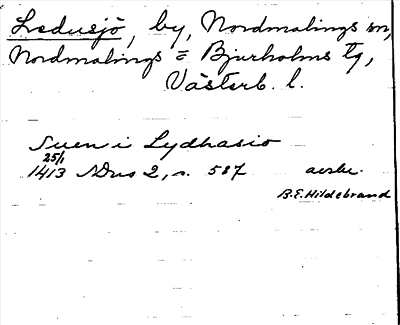 Ledusjö, by, Nordmalings sn,
Nordmalings = Bjurholms tg,
Västerb. l.
Suen i Lydhasio
25/1
1413 NDus 2, s. 587 avskr.
B.E. Hildebrand